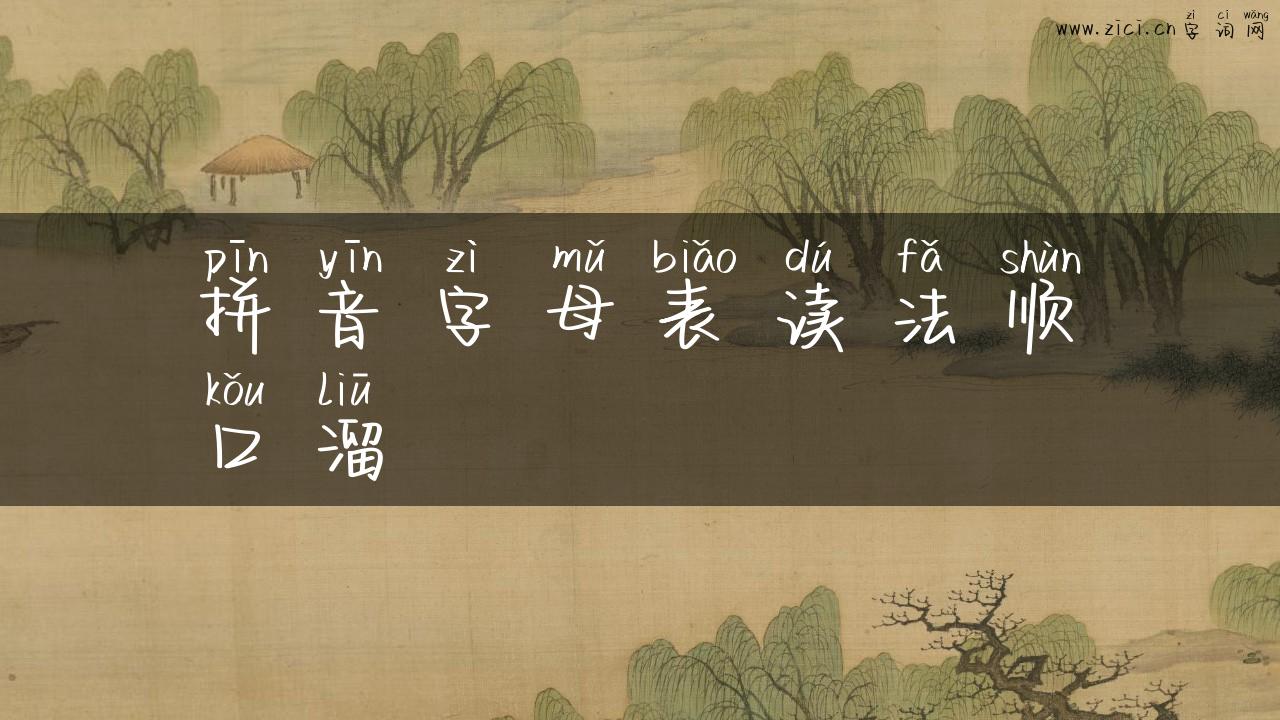 zì cí wǎng
www.zici.cn 字 词 网
pīn yīn zì mǔ biǎo dú fǎ shùn
拼 音 字 母 表 读 法 顺
kǒu liū
口 溜